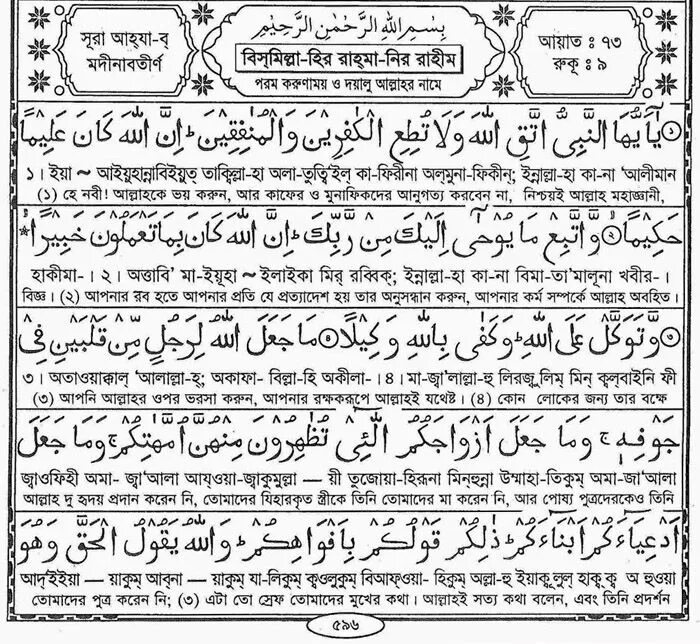 সূরা আহ্‌যা-ব্
মদীনাবতীর্ণ
بِسْمِ اللّٰهِ الرَّحْمٰنِ الرَّحِيْمِ
বিস্‌মিল্লা-হির রাহ্‌মা-নির রাহীম
পরম করুণাময় ও দয়ালু আল্লাহর নামে
আয়াত : ৭৩
রুকূ : ৯
① يٰۤاَيُّهَا النَّبِىُّ اتَّقِ اللّٰهَ وَلَا تُطِعِ الْكٰفِرِيْنَ وَالْمُنٰفِقِيْنَ ؕ اِنَّ اللّٰهَ كَانَ عَلِيْمًا
১। ইয়া ~ আইয়ুহান্নাবিইয়ুত্ তাকিল্লা-হা অলা-তুত্বি‘ইল্ কা-ফিরীনা অল্‌মুনা-ফিকীন্; ইন্নাল্লা-হা কা-না ‘আলীমান
(১) হে নবী! আল্লাহকে ভয় করুন, আর কাফের ও মুনাফিকদের আনুগত্য করবেন না, নিশ্চয়ই আল্লাহ মহাজ্ঞানী,
حَكِيْمًا ② وَّاتَّبِعْ مَا يُوْحٰۤى اِلَيْكَ مِنْ رَّبِّكَ ؕ اِنَّ اللّٰهَ كَانَ بِمَا تَعْمَلُوْنَ خَبِيْرًا
হাকীমা-। ২। অত্তাবি’ মা-ইয়ূহা ~ ইলাইকা মির্ রব্বিক্; ইন্নাল্লা-হা কা-না বিমা-তা’মালূনা খবীর-।
বিজ্ঞ। (২) আপনার রব হতে আপনার প্রতি যে প্রত্যাদেশ হয় তার অনুসন্ধান করুন, আপনার কর্ম সম্পর্কে আল্লাহ অবহিত।
③ وَّتَوَكَّلْ عَلَى اللّٰهِ ؕ وَكَفٰى بِاللّٰهِ وَكِيْلًا ④ مَا جَعَلَ اللّٰهُ لِرَجُلٍ مِّنْ قَلْبَيْنِ فِىْ
৩। অতাওয়াক্কাল্ ‘আলাল্লা-হ্; অকাফা- বিল্লা-হি অকীলা-। ৪। মা-জ্বা‘লাল্লা-হু লিরজুলিম্ মিন্ ক্বল্‌বাইনি ফী
(৩) আপনি আল্লাহর ওপর ভরসা করুন, আপনার রক্ষকরূপে আল্লাহই যথেষ্ট। (৪) কোন লোকের জন্য তার বক্ষে
جَوْفِهٖ ۚ وَمَا جَعَلَ اَزْوَاجَكُمُ الّٰٓـئِىْ تُظٰهِرُوْنَ مِنْهُنَّ اُمَّهٰتِكُمْ ۚ وَمَا جَعَلَ
জ্বাওফিহী অমা- জ্বা‘আলা আয্ওয়া-জ্বাকুমুল্লা — য়ী তুজোয়া-হিরূনা মিন্‌হুন্না উম্মাহা-তিকুম্ অমা-জা‘আলা
আল্লাহ দু হৃদয় প্রদান করেন নি, তোমাদের যিহারকৃত স্ত্রীকে তিনি তোমাদের মা করেন নি, আর পোষ্য পুত্রদেরকেও তিনি
اَدْعِيَآءَكُمْ اَبْنَآءَكُمْ ؕ ذٰلِكُمْ قَوْلُكُمْ بِاَفْوَاهِكُمْ ؕ وَاللّٰهُ يَقُوْلُ الْحَقَّ وَهُوَ
আদ্‘ইইয়া — য়াকুম্ আব্‌না — য়াকুম্ যা-লিকুম্ ক্বওলুকুম্ বিআফ্ওয়া- হিকুম্ অল্লা-হু ইয়াকূলুল্ হাক্ব্ক্ব অ হুওয়া
তোমাদের পুত্র করেন নি; (৩) এটা তো স্রেফ তোমাদের মুখের কথা। আল্লাহই সত্য কথা বলেন, এবং তিনি প্রদর্শন
৫৯৬